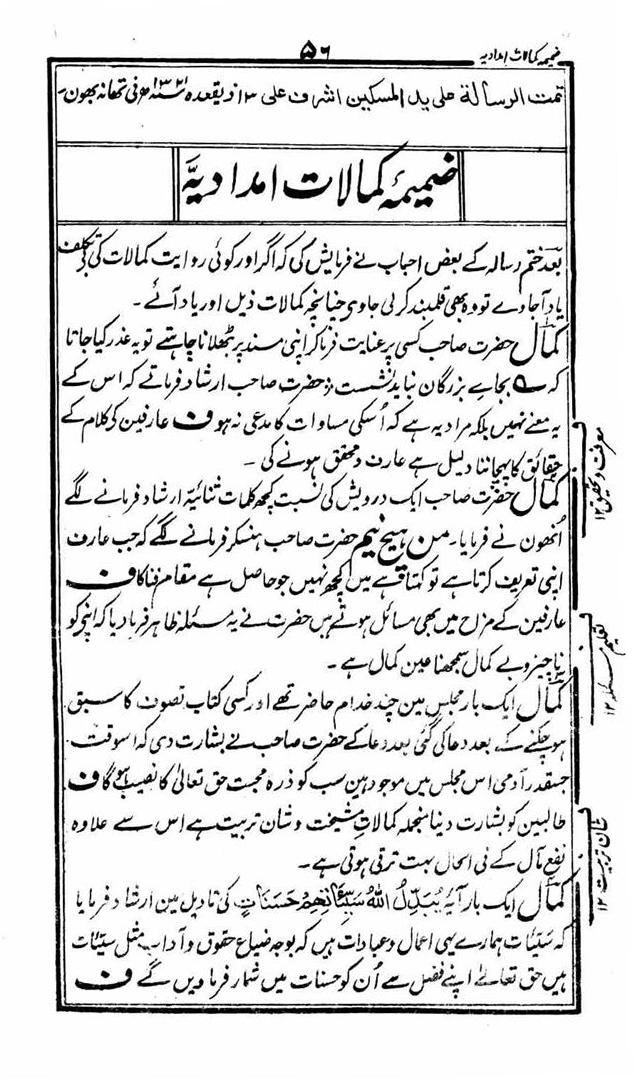 ضمیمہ کمالات امدادیہ
۵۶
تمت الرسالة علی ید المسکین اشرف علی ۱۳ ذیقعدہ ۱۳۲۱ سنہ ھ فی تھانہ بھون۔
ضمیمۂ کمالات امدادیہَّ
بعد ختم رسالہ کے بعض احباب نے فرمایش کی کہ اگر اور کوئی روایت کمالات کی بے تکلف
یاد آجاوے تو وہ بھی قلمبند کرلی جاوی چنانچہ کمالات ذیل اور یاد آئے۔
کمال حضرت صاحب کسی پر عنایت فرماکر اپنی مسند پر بٹھلانا چاہتے تو یہ عذر کیا جاتا
کہ ؎ بجاے بزرگان نباید نشست ؛ حضرت صاحب ارشاد فرماتے کہ اس کے
یہ معنے نہیں بلکہ مراد یہ ہے کہ اُسکی مساوات کا مدعی نہ ہو ف عارفین کی کلام کے
حقائق کا پہچاننا دلیل ہے عارف و محقق ہونے کی۔
کمال حضرت صاحب ایک درویش کی نسبت کچھ کلمات ثنائیہ ارشاد فرمانے لگے
اُنھون نے فرمایا۔ من ہیچ نیم حضرت صاحب ہنسکر فرمانے لگے کہ جب عارف
اپنی تعریف کرتا ہے تو کہتا ہے میں کچھ نہیں جو حاصل ہے مقام فنا کا ف
عارفین کے مزاح میں بھی مسائل ہوتے ہیں حضرت نے یہ مسئلہ ظاہر فرمادیا کہ اپنی کو
ناچیز و بے کمال سمجھنا عین کمال ہے۔
کمال ایک بار مجلس مین چند خدام حاضر تھے اور کسی کتاب تصوف کا سبق
ہو چکنے کے بعد دعا کی گئی بعد دعا کے حضرت صاحب نے بشارت دی کہ اسوقت
جسقدر آدمی اس مجلس میں موجود ہین سب کو ذرہ محبت حق تعالیٰ کا نصیب ہوگا ف
طالبین کو بشارت دینا منجملہ کمالات مشیخت و شان تربیت ہے اس سے علاوہ
نفع مآل کے فی الحال بہت ترقی ہوتی ہے۔
کمال ایک بار آیۃ یُبَدِّلُ اللّٰهُ سَيِّئَاتِهِمْ حَسَنَاتٍ کی تاویل مین ارشاد فرمایا
کہ سیّئات ہمارے یہی اعمال و عبادات ہیں کہ بوجہ ضیاع حقوق و آداب مثل سیّئات
ہیں حق تعالےٰ اپنے فضل سے اُن کو حسنات میں شمار فرمادیں گے ف
معرفت و تحقیق ۱۲
تعلیم مسئلہ ۱۲
شان تربیت ۱۲